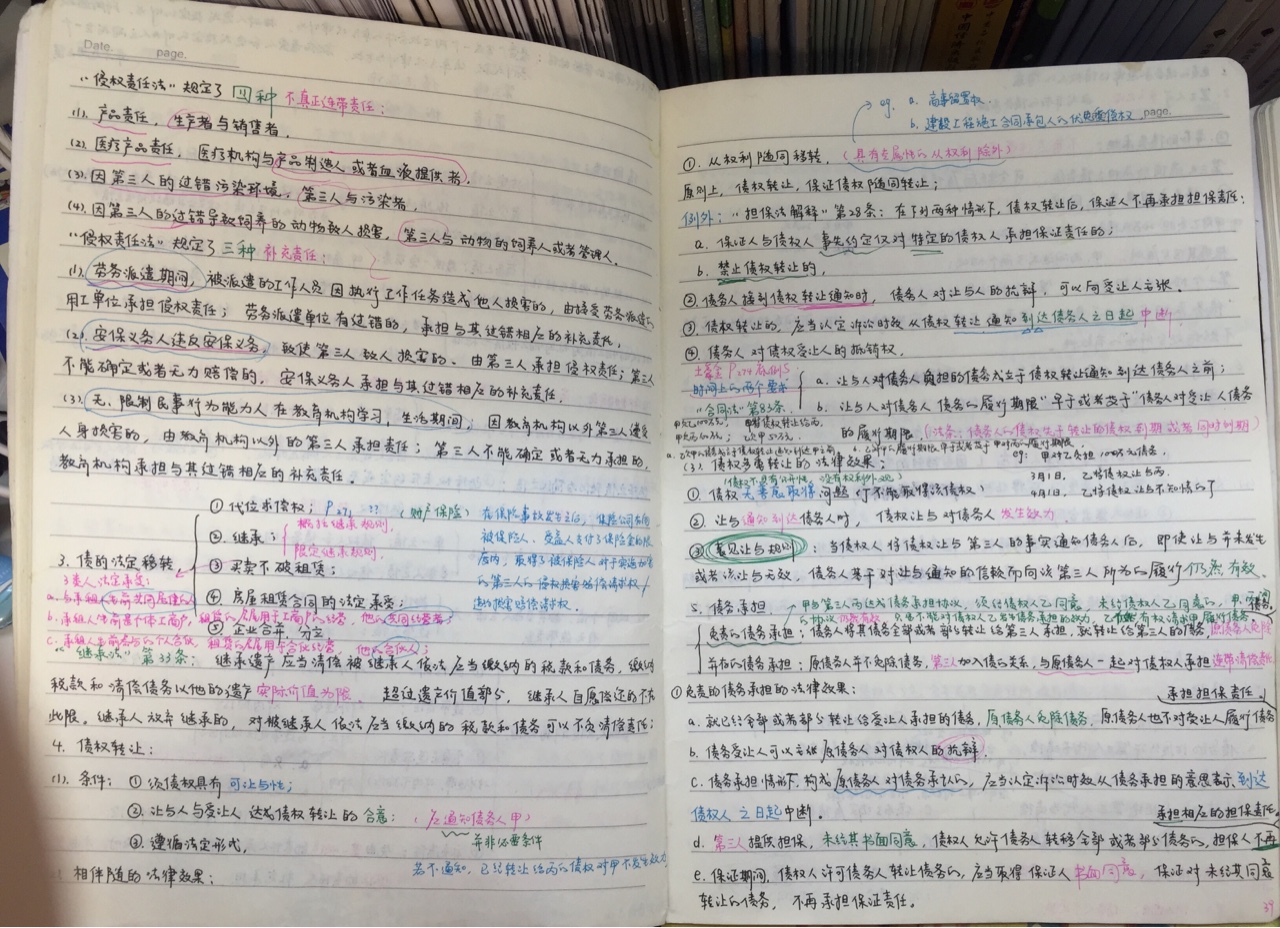 Date. page.
"侵权责任法"规定了 四种 不真正连带责任:
(1). 产品责任, 生产者与销售者.
(2). 医疗产品责任, 医疗机构与产品制造人或者血液提供者.
(3). 因第三人的过错污染环境, 第三人与污染者.
(4). 因第三人的过错导致饲养的动物致人损害, 第三人与动物的饲养人或者管理人.
"侵权责任法"规定了三种 补充责任:
(1). 劳务派遣期间, 被派遣的工作人员因执行工作任务造成他人损害的, 由接受劳务派遣的
用工单位承担侵权责任; 劳务派遣单位有过错的, 承担与其过错相应的补充责任,
(2). 安保义务人违反安保义务, 致使第三人致人损害的、由第三人承担侵权责任; 第三人
不能确定或者无力赔偿的, 安保义务人承担与其过错相应的补充责任.
(3). 无、限制民事行为能力人在教育机构学习, 生活期间, 因教育机构以外第三人遭受
人身损害的, 由教育机构以外的第三人承担责任; 第三人不能确定或者无力承担的,
教育机构承担与其过错相应的补充责任.
3. 债的法定移转,
① 代位求偿权; P271 ?? (财产保险)
在保险事故发生之后, 保险公司
被保险人、受益人支付了保险金的限
度内, 取得了被保险人对于实施加害
的第三人的侵权损害赔偿请求权/
损害赔偿请求权.
② 继承: 概括继承规则.
限定继承规则.
③ 买卖不破租赁;
④ 房屋租赁合同的法定承受;
⑤ 企业合并, 分立
3类人法定承受:
a. 与承租人生前共同居住的人
b. 承租人生前是个体工商户, 租赁的房屋用于工商户的经营, 他的共同经营者;
c. 承租人生前参与的个人合伙, 租赁的房屋用于合伙经营, 他的合伙人;
"继承法"第33条: 继承遗产应当清偿被继承人依法应当缴纳的税款和债务, 缴纳
税款和清偿债务以他的遗产实际价值为限. 超过遗产价值部分, 继承人自愿偿还的不在
此限. 继承人放弃继承的, 对被继承人依法应当缴纳的税款和债务可以不负清偿责任;
4. 债权转让:
(1). 条件: ① 须债权具有可让与性;
② 让与人与受让人达成债权转让的合意: (应通知债务人甲)
并非必要条件
③ 遵循法定形式,
若不通知, 已经转让给丙的债权对甲不发生效力
相伴随的法律效果:
eg. a. 商事留置权.
b. 建设工程施工合同承包人的优先受偿权
page.
①. 从权利随同移转, (具有专属性的从权利除外)
原则上, 债权转让, 保证债权随同转让;
例外: "担保法解释"第28条: 在下列两种情形下, 债权转让后, 保证人不再承担担保责任:
a. 保证人与债权人事先约定仅对特定的债权人承担保证责任的;
b. 禁止债权转让的,
② 债务人接到债权转让通知时, 债务人对让与人的抗辩, 可以向受让人主张.
③ 债权转让的, 应当认定诉讼时效从债权转让通知到达债务人之日起中断
④ 债务人对债权受让人的抵销权,
P274 案例5
时间上的两个要求
"合同法"第83条
a. 让与人对债务人负担的债务成立于债权转让通知到达债务人之前;
b. 让与人对债务人债务的履行期限"早于或者等于"债务人对受让人债务
的履行期限, (法条: 债务人的债权先于转让的债权到期或者同时到期)
(3). 债权多重转让的法律效果:
eg: 甲对乙负担100万元债务,
(债权不具有公开性, 没有权利外观)
① 债权无善意取得问题 (丁不能取得该债权)
3月1日, 乙将债权让与丙
4月1日, 乙将债权让与不知情的丁
② 让与通知到达债务人时, 债权让与对债务人发生效力.
③ 表见让与规则: 当债权人将债权让与第三人的事实通知债务人后, 即使让与并未发生
或者该让与无效, 债务人基于对让与通知的信赖而向该第三人所为的履行仍然有效.
5. 债务承担 甲与第三人丙达成债务承担协议, 须经债权人乙同意, 未经债权人乙同意的, 甲、丙间
的协议仍然有效, 只是不能对债权人乙发生债务承担的效力, 乙有权请求甲履行债务
免责的债务承担: 债务人将其债务全部或者部分转让给第三人承担, 就转让给第三人的债务, 原债务人免除
并存的债务承担: 原债务人并不免除债务, 第三人加入债的关系, 与原债务人一起对债权人承担连带清偿责任
① 免责的债务承担的法律效果:
承担担保责任.
a. 就已经全部或者部分转让给受让人承担的债务, 原债务人免除债务, 原债务人也不对受让人履行债务
b. 债务受让人可以主张原债务人对债权人的抗辩.
c. 债务承担情形下, 构成原债务人对债务承认的, 应当认定诉讼时效从债务承担的意思表示到达
债权人之日起中断.
承担相应的担保责任.
d. 第三人提供担保, 未经其书面同意, 债权人允许债务人转移全部或者部分债务的, 担保人不再
e. 保证期间, 债权人许可债务人转让债务的, 应当取得保证人书面同意, 保证对未经其同意
转让的债务, 不再承担保证责任.
39